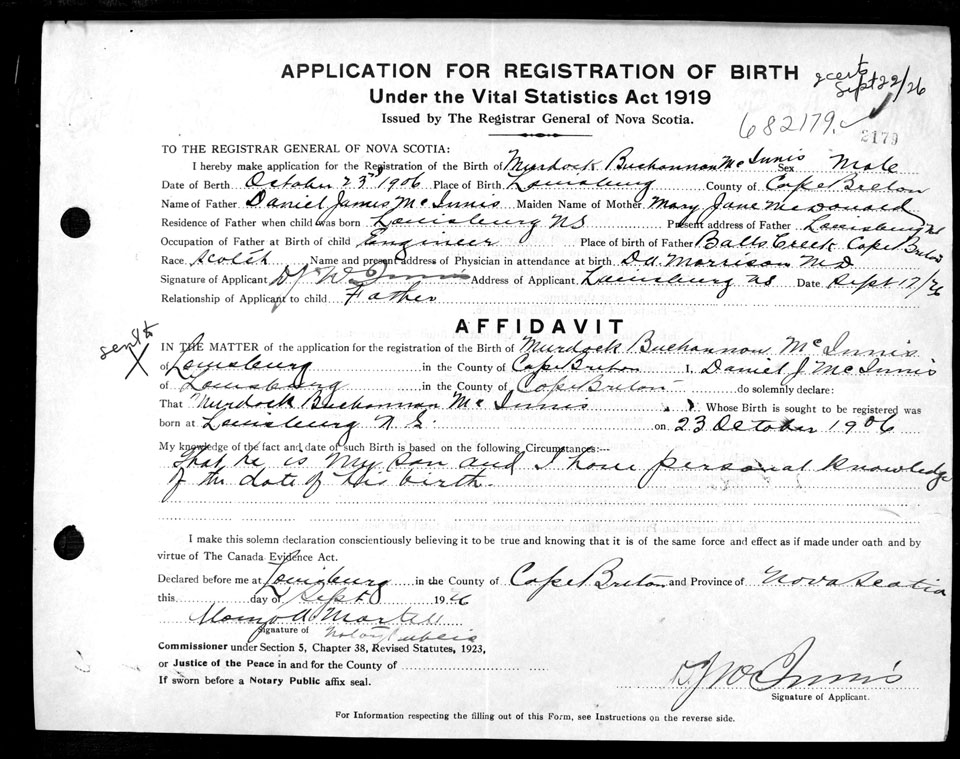 APPLICATION FOR REGISTRATION OF BIRTH
2 certs
Sept 22/26
Under the Vital Statistics Act 1919
Issued by The Registrar General of Nova Scotia.
682179.
2179
TO THE REGISTRAR GENERAL OF NOVA SCOTIA:
I hereby make application for the Registration of the Birth of Murdock Buchannan McInnis Sex Male
Date of Birth October 23rd 1906 Place of Birth Louisburg County of Cape Breton
Name of Father Daniel James McInnis Maiden Name of Mother Mary Jane McDonald
Residence of Father when child was born Louisburg NS Present address of Father Louisburg NS
Occupation of Father at Birth of child Engineer Place of birth of Father Balls Creek Cape Breton
Race Scotch Name and present address of Physician in attendance at birth D.A. Morrison MD
Signature of Applicant D J McInnis Address of Applicant Louisburg NS Date Sept 17/26
Relationship of Applicant to child Father
AFFIDAVIT
IN THE MATTER of the application for the registration of the Birth of Murdock Buchannon McInnis
of Louisburg in the County of Cape Breton I, Daniel J. McInnis
of Louisburg in the County of Cape Breton do solemnly declare:
That Murdock Buchannan McInnis Whose Birth is sought to be registered was
born at Louisburg N.S. on 23 October 1906
My knowledge of the fact and date of such Birth is based on the following Circumstances:--
That he is my son and I have personal knowledge
of the date of his birth.
I make this solemn declaration conscientiously believing it to be true and knowing that is of the same force and effect as if made under oath and by
virtue of The Canada Evidence Act.
Declared before me at Louisburg in the County of Cape Breton and Province of Nova Scotia
this day of Sept 1926
Martell
Signature of Notary Public
Commissioner under Section 5, Chapter 38, Revised Statutes, 1923,
or Justice of the Peace in and for the County of
If sworn before a Notary Public affix seal.
D.J. McInnis
Signature of Applicant.
For Information respecting the filling out of this Form, see Instructions on the reverse side.